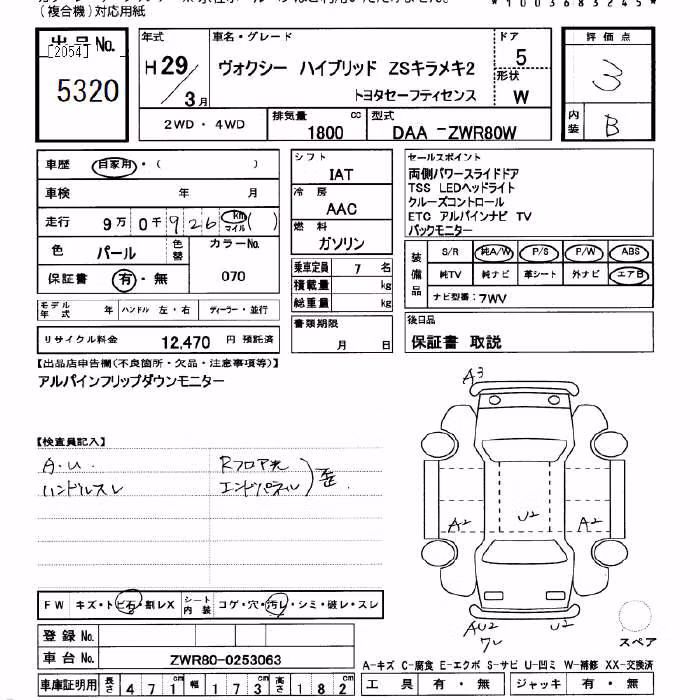 (複合機)対応用紙
*1003683245*
出品No.
[2054]
5320
年式
H29/3月
車名・グレード
ヴォクシー ハイブリッド ZSキラメキ2
トヨタセーフティセンス
ドア
5
形状
W
評価点
3
内装
B
2WD・4WD
排気量
1800 cc
型式
DAA -ZWR80W
車歴 自家用・( )
車検 年 月
走行 9万0千926 km マイル ( )
色 パール 色替
カラーNo.
070
保証書 有・無
モデル年式 年 ハンドル 左・右 ディーラー・並行
リサイクル料金 12,470 円 預託済
シフト
IAT
冷房
AAC
燃料
ガソリン
乗車定員 7 名
積載量 kg
総重量 kg
書類期限
月 日
セールスポイント
両側パワースライドドア
TSS LEDヘッドライト
クルーズコントロール
ETC アルパインナビ TV
バックモニター
装備品
S/R 純A/W P/S P/W ABS
純TV 純ナビ 革シート 外ナビ エアB
ナビ型番:7WV
後日品
保証書 取説
【出品店申告欄(不良箇所・欠品・注意事項等)】
アルパインフリップダウンモニター
【検査員記入】
A.U.
ハンドルスレ
Rフロア大
エンドパネル
歪
A3
A2
U2
A2
AU2
ワレ
U2
スペア
FW キズ・トビ石・割レX シート内装 コゲ・穴・汚レ・シミ・破レ・スレ
登録No.
車台No. ZWR80-0253063
車庫証明用 長さ 471cm 幅 173cm 高さ 182cm
A-キズ C-腐食 E-エクボ S-サビ U-凹ミ W-補修 XX-交換済
工具 有・無 ジャッキ 有・無